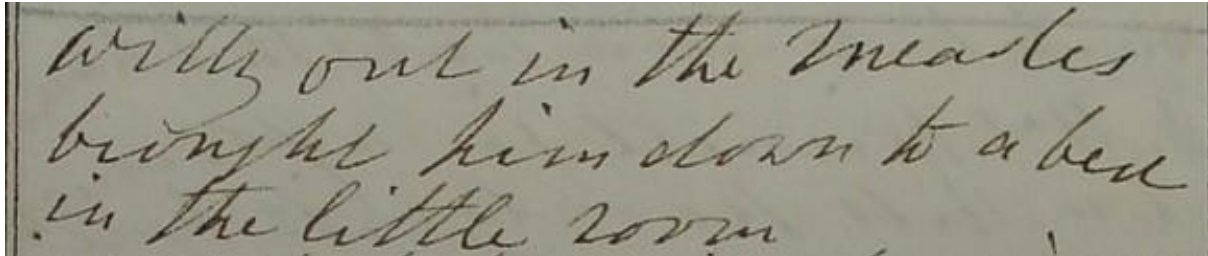 Willy out in the Measles
brought him down to a bed
in the little room